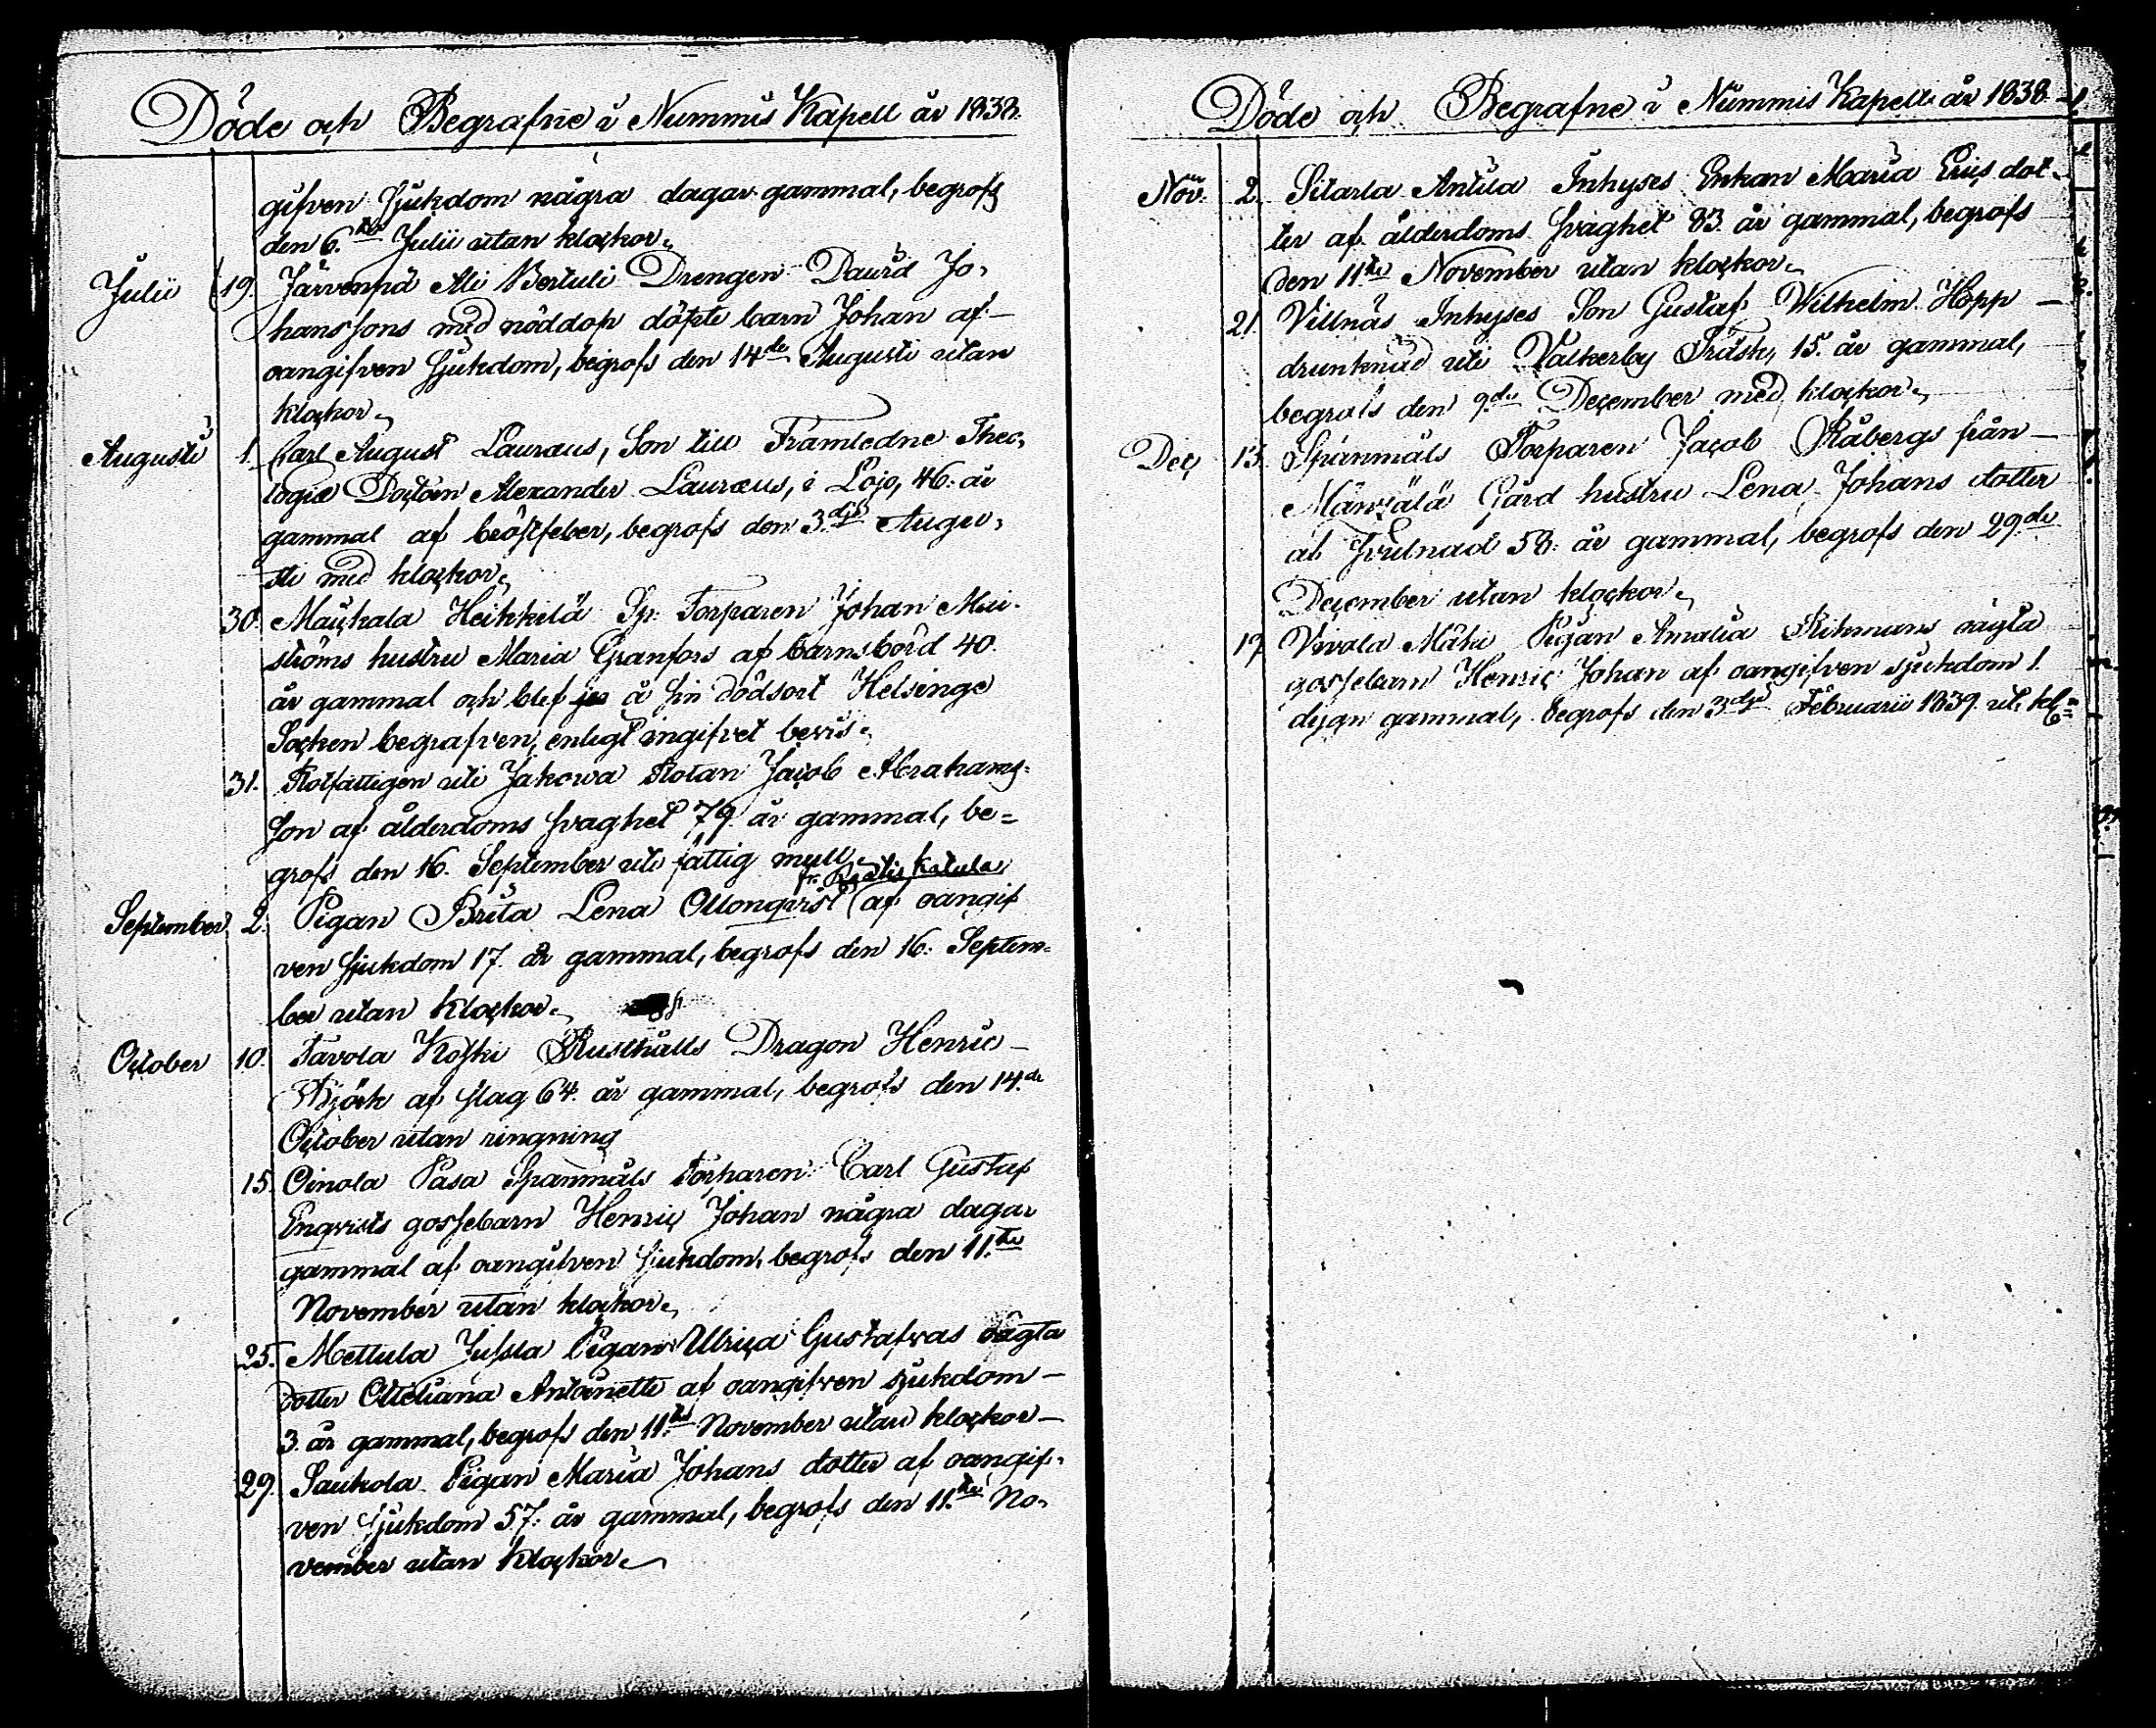 Döde och Begrafne i Nummis Kapell år 1838.
gifven sjukdom några dagar gammal, begrofs
den 6.te Julii utan klockor.
Julii 19. Järvenpä Ali Bertuli Drengen David Jo-
hanssons med nöddop döpte barn Johan af
oangifven sjukdom, begrofs den 14de Augusti utan
klockor.
Augusti 1. Carl August Lauræus, Son till Framledne Theo-
logiæ Doctorn Alexander Lauræus, i Lojo, 46. år
gammal af bröstfeber, begrofs den 3.dje Augu-
sti med klockor.
30. Mauckala Heikkilä Sp: Torparen Johan Mai-
ströms hustru Maria Granfors af barnsbörd 40.
år gammal och blef å sin dödsort Helsinge
Socken begrafven, enligt ingifvet bevis.
31. Rotfattigen uti Jakowa Rotan Jacob Abrahams-
son af ålderdoms svaghet 79. år gammal, be=
grofs den 16. September uti fattig mull.
fr. Raatis Katula
September 2. Pigan Brita Lena Ollonqvist af oangif
ven sjukdom 17. år gammal, begrofs den 16. Septem-
ber utan klockor.
October 10. Tavola Koski Rusthålls Dragon Henric
Björk af slag 64. år gammal, begrofs den 14.de
October utan ringning
15. Oinola Pasa Spanmåls Torparen Carl Gustaf
Enqvists gossebarn Henric Johan några dagar
gammal af oangifven sjukdom, begrofs den 11.te
November utan klockor.
25. Mettula Jussla Pigan Ulrica Gustafvas oägta
dotter Antoinette af oangifven sjukdom
3. år gammal, begrofs den 11.te November utan klockor
29. Saukola Pigan Maria Johans dotter af oangif-
ven sjukdom 57. år gammal, begrofs den 11.te No-
vember utan klockor.
Döde och Begrafne i Nummis Kapell år 1838.
Nov. 2. Sitarla Anttila Inhyses Enkan Maria Erics dot-
ter af ålderdoms svaghet 83. år gammal, begrofs
den 11.te November utan klockor.
21. Villnäs Inhyses Son Gustaf Wilhelm Hopp
drunknad uti Valkerby Träsk, 15. år gammal,
begrofs den 9.de December med klockor.
Dec 13. Spanmåls Torparen Jacob Råbergs från
Mänsälä Gård hustru Lena Johans dotter
af svulnad 58. år gammal, begrofs den 29.de
December utan klockor.
17. Vivola Mäki Pigan Amalia Rikmans oägta
gossebarn Henric Johan af oangifven sjukdom 1.
dygn gammal, begrofs den 3dje Februarii 1839. ut. kl.